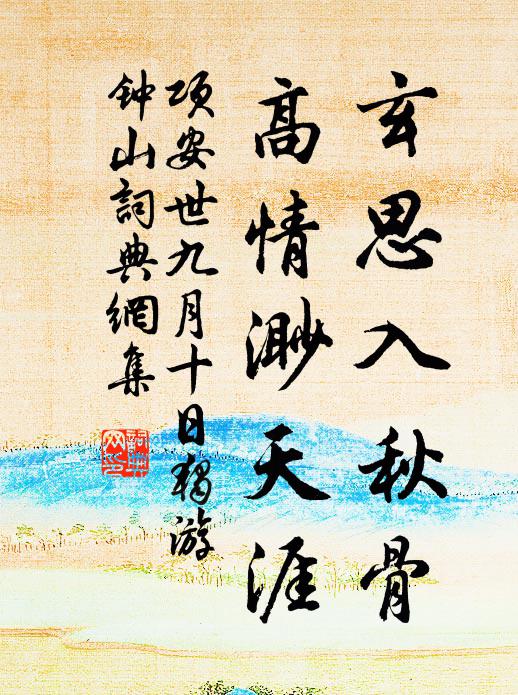 玄思入秋骨
高情渺天涯
項安世九月十日獨游
钟山詞典網集